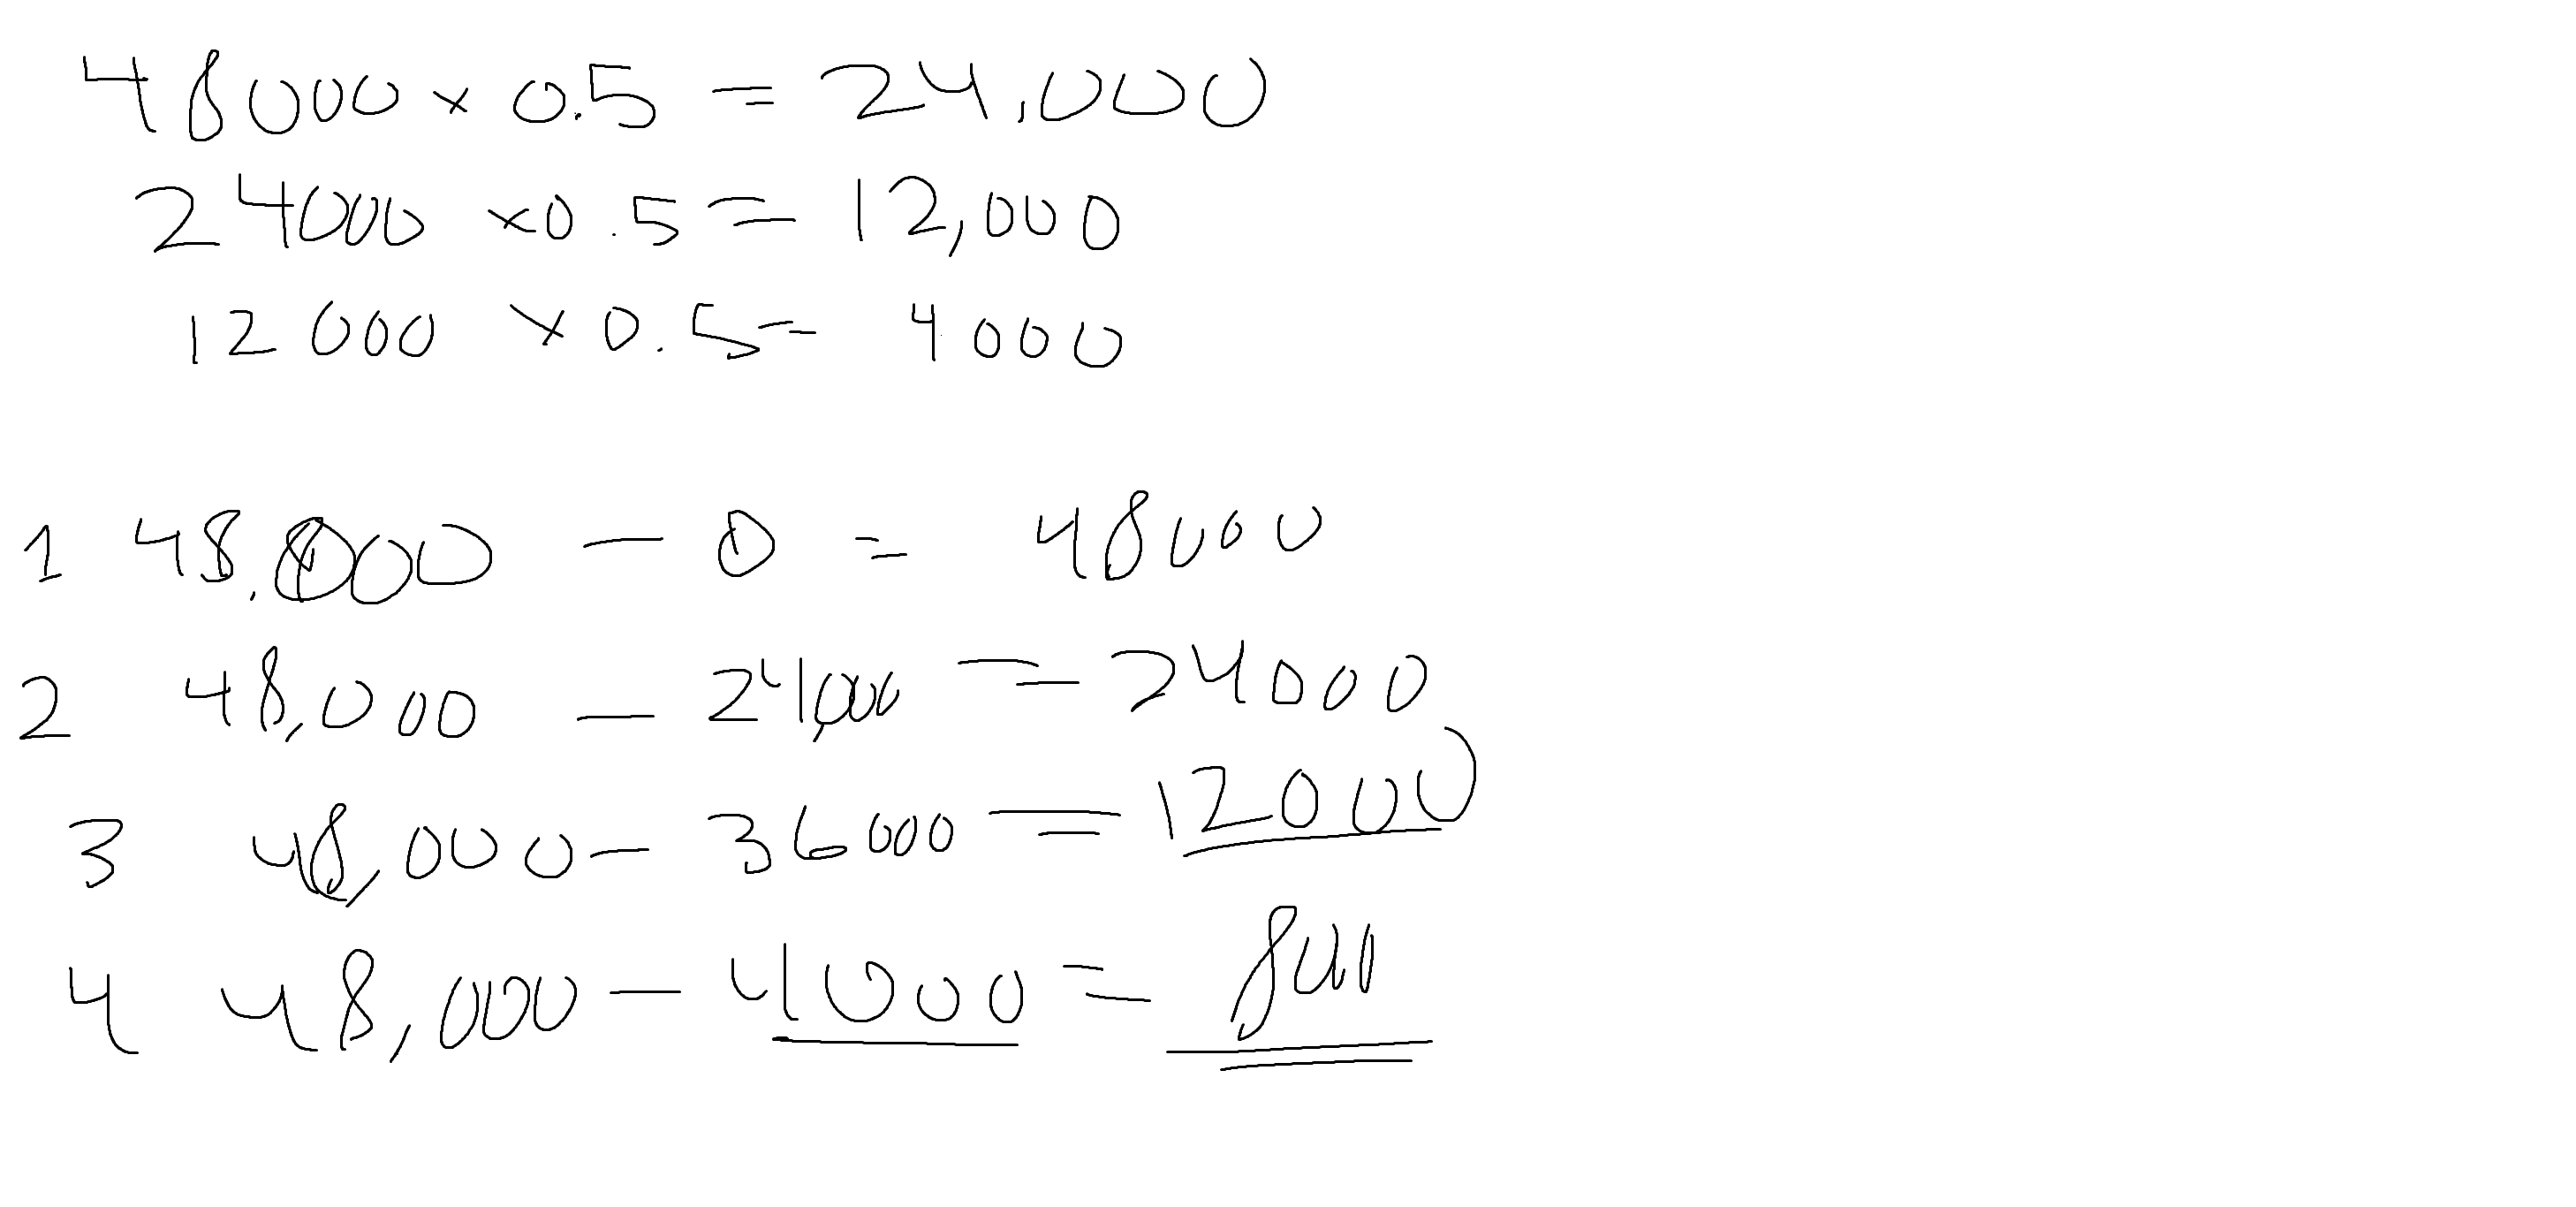 48000 × 0.5 = 24,000
24000 × 0.5 = 12,000
12000 × 0.5 = 4000
1 48,000 - 0 = 48000
2 48,000 - 24,000 = 24000
3 48,000 - 36000 = 12000
4 48,000 - 4000 = 800